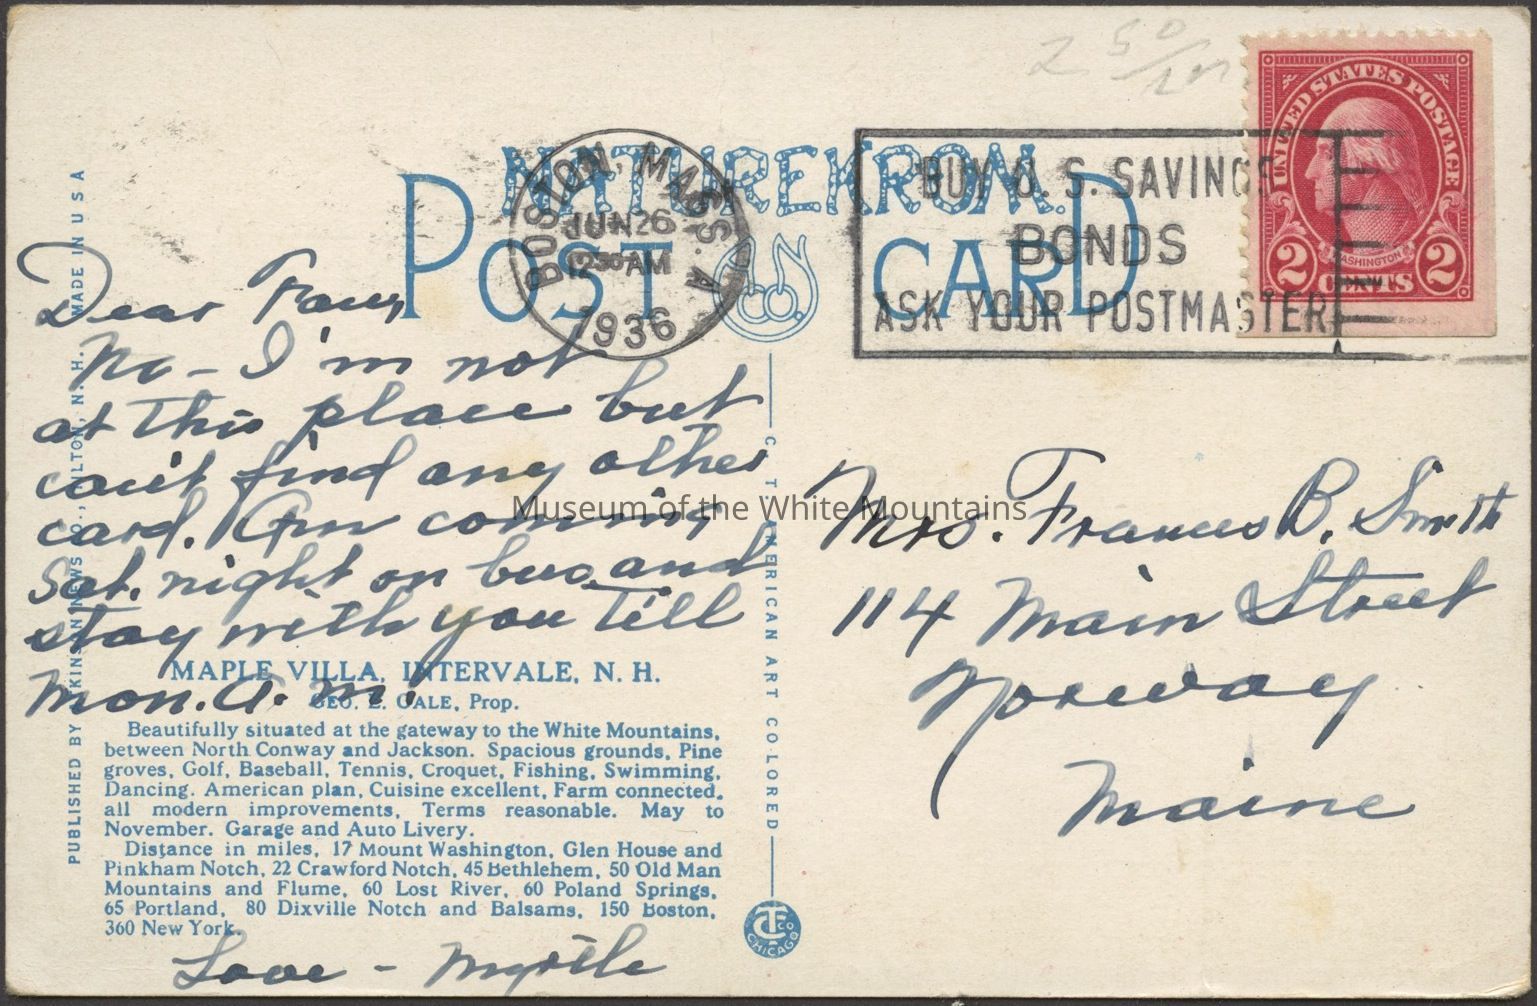 2 50
NATUREKROM.
POST CARD
BOSTON, MASS. A
JUN 26
12 30 AM
1936
BUY U. S. SAVINGS
BONDS
ASK YOUR POSTMASTER
UNITED STATES POSTAGE
WASHINGTON
2 CENTS 2
Dear Fan,
No - I'm not
at this place but
can't find any other
card. Am coming
Sat. night on bus and
stay with you till
Mon. a. m.
Love - Myrtle
Mrs. Frances B. Smith
114 Main Street
Norway
Maine
MAPLE VILLA, INTERVALE, N. H.
GEO. E. GALE, Prop.
Beautifully situated at the gateway to the White Mountains,
between North Conway and Jackson. Spacious grounds, Pine
groves, Golf, Baseball, Tennis, Croquet, Fishing, Swimming,
Dancing. American plan, Cuisine excellent, Farm connected,
all modern improvements, Terms reasonable. May to
November. Garage and Auto Livery.
Distance in miles, 17 Mount Washington, Glen House and
Pinkham Notch, 22 Crawford Notch, 45 Bethlehem, 50 Old Man
Mountains and Flume, 60 Lost River, 60 Poland Springs,
65 Portland, 80 Dixville Notch and Balsams, 150 Boston,
360 New York.
PUBLISHED BY NEWS CO., N. H. MADE IN U S A
C. T. AMERICAN ART COLORED
CT CO CHICAGO
Museum of the White Mountains